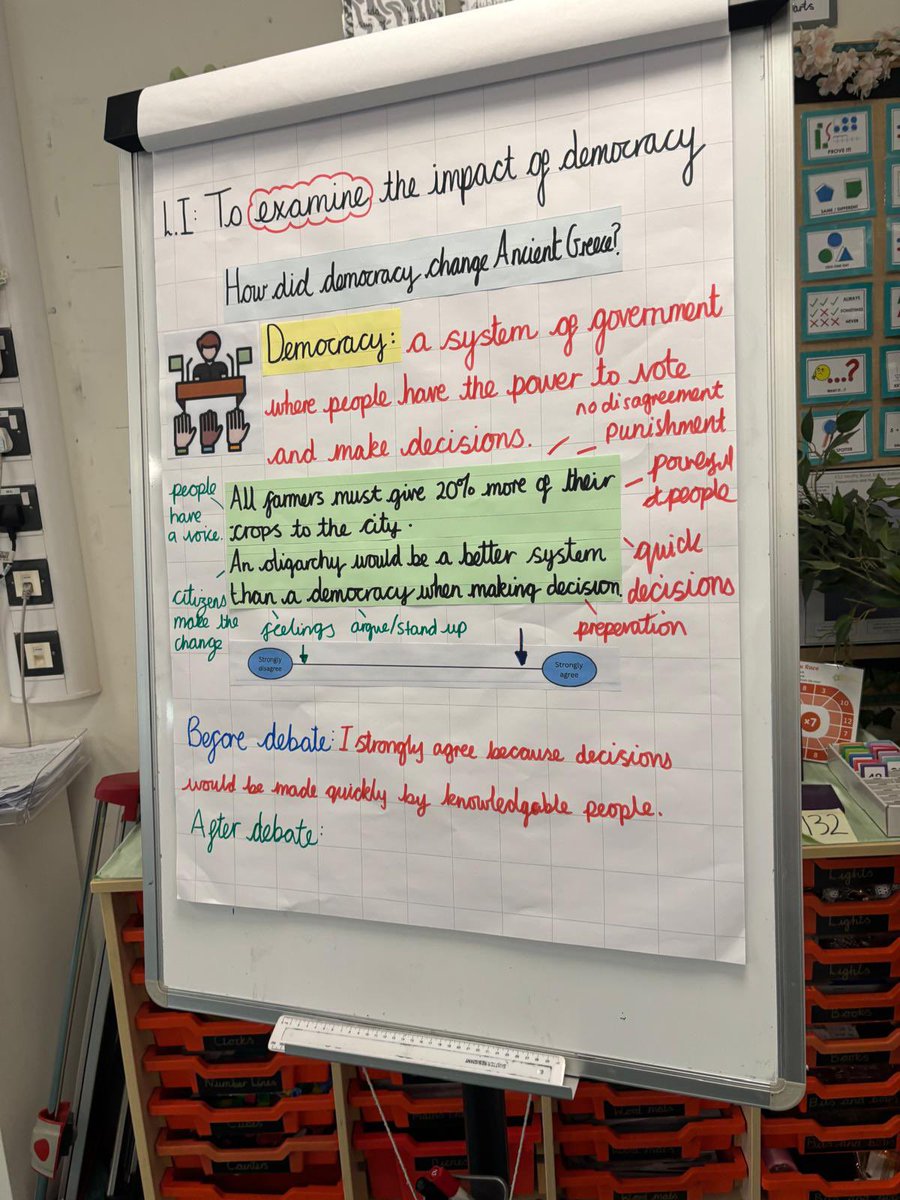 L.I: To examine the impact of democracy
How did democracy change Ancient Greece?
Democracy: a system of government
where people have the power to vote
and make decisions.
no disagreement
punishment
powerful
people
quick
decisions
preperation
people
have
a voice.
citizens
make the
change
All farmers must give 20% more of their
crops to the city.
An oligarchy would be a better system
than a democracy when making decision.
feelings
argue/stand up
Strongly
disagree
Strongly
agree
Before debate: I strongly agree because decisions
would be made quickly by knowledgable people.
After debate:
PROVE IT!
SAME / DIFFERENT
ALWAYS
SOMETIMES
NEVER
x7
132
Lights
Lights
Lights
Books
Books
Clocks
Number Lines